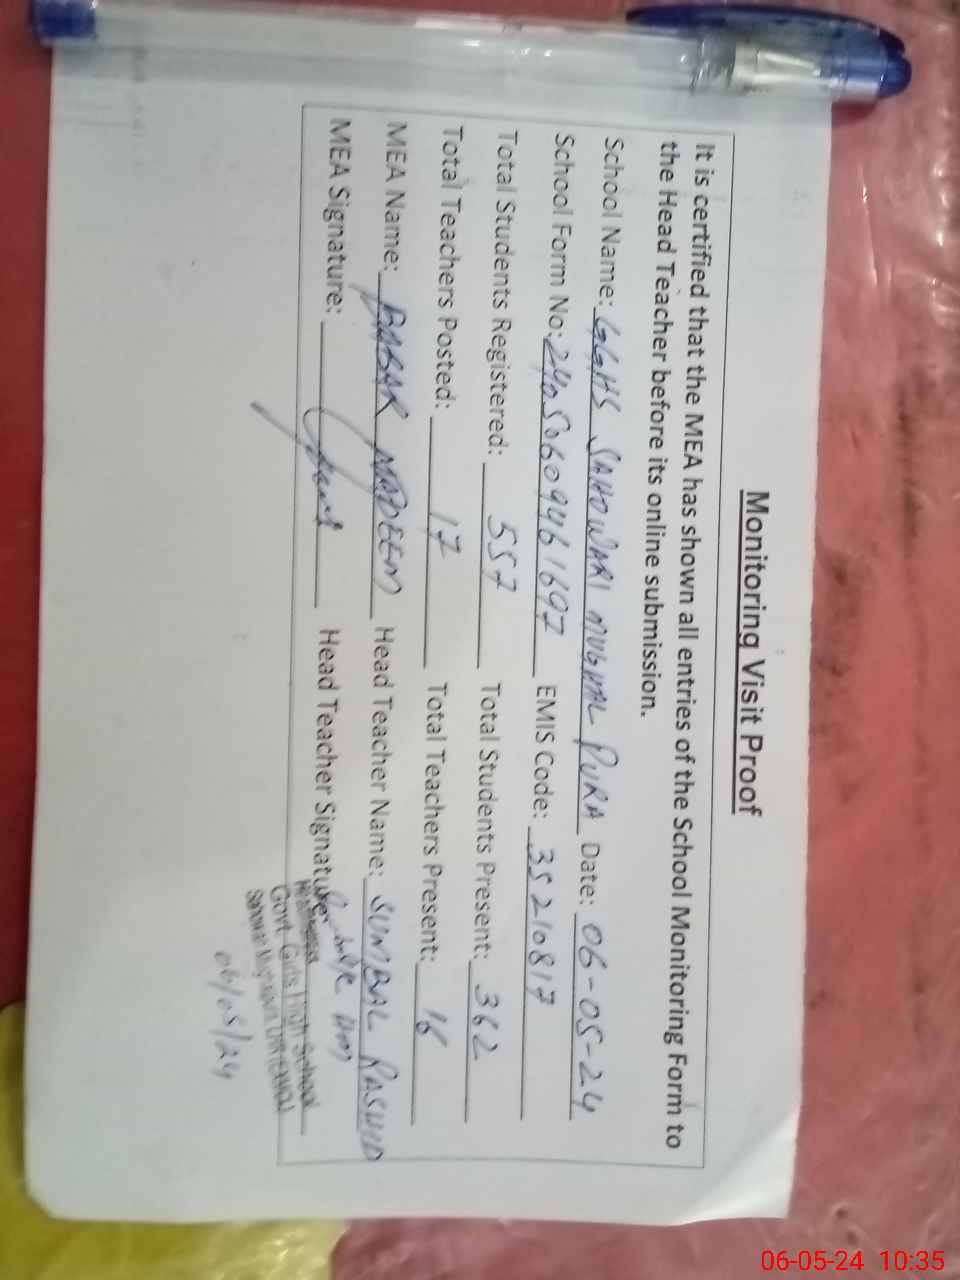 Monitoring Visit Proof
It is certified that the MEA has shown all entries of the School Monitoring Form to
the Head Teacher before its online submission.
School Name: GGHS SAHOWARI MUGHAL PURA Date: 06-05-24
School Form No: 2405060994461697 EMIS Code: 35210817
Total Students Registered: 557 Total Students Present: 362
Total Teachers Posted: 17 Total Teachers Present: 16
MEA Name: BABAR NADEEM Head Teacher Name: SUMBAL RASHID
MEA Signature: Head Teacher Signature:
Govt. Girls High School
06/05/24
06-05-24 10:35